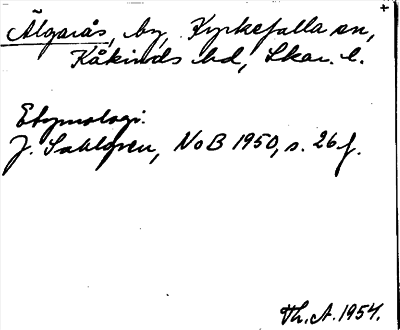 Älgarås, by, Kyrkefalla sn,
Kåkinds hd, Skar. l.
Etymologi:
J. Sahlgren, NoB 1950, s. 26 f.
Th. A. 1954.